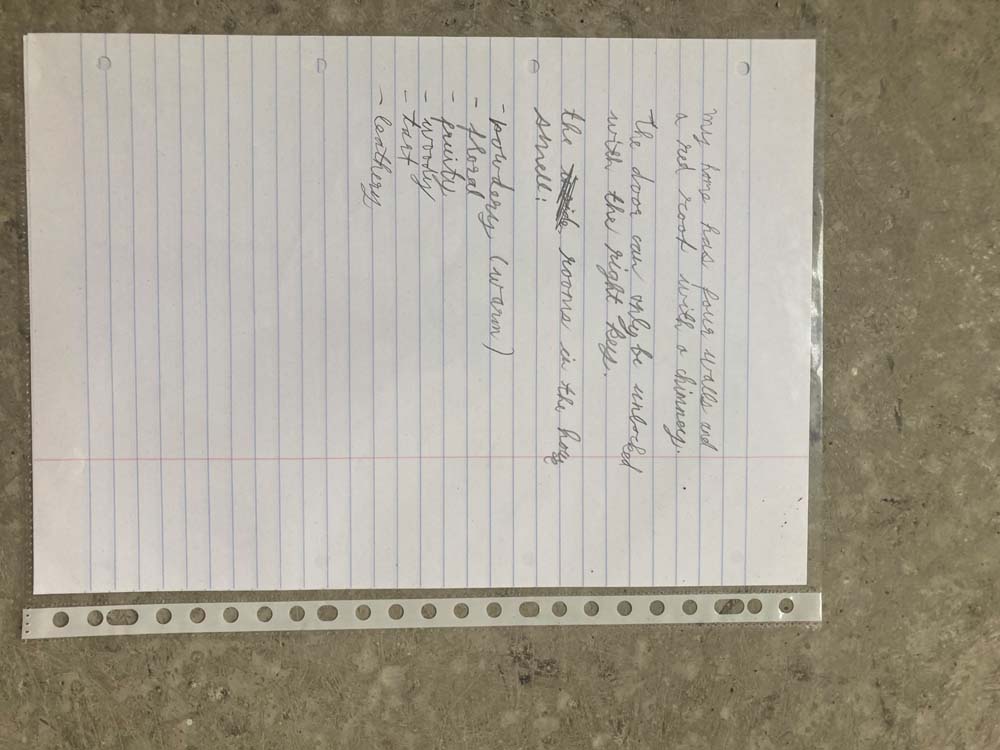 my home has four walls and
a red roof with a chimney.
the door can only be unlocked
with the right key.
the rooms in the
smell:
- powdery (warm)
- floral
- fruity
- woody
- tart
- leathery